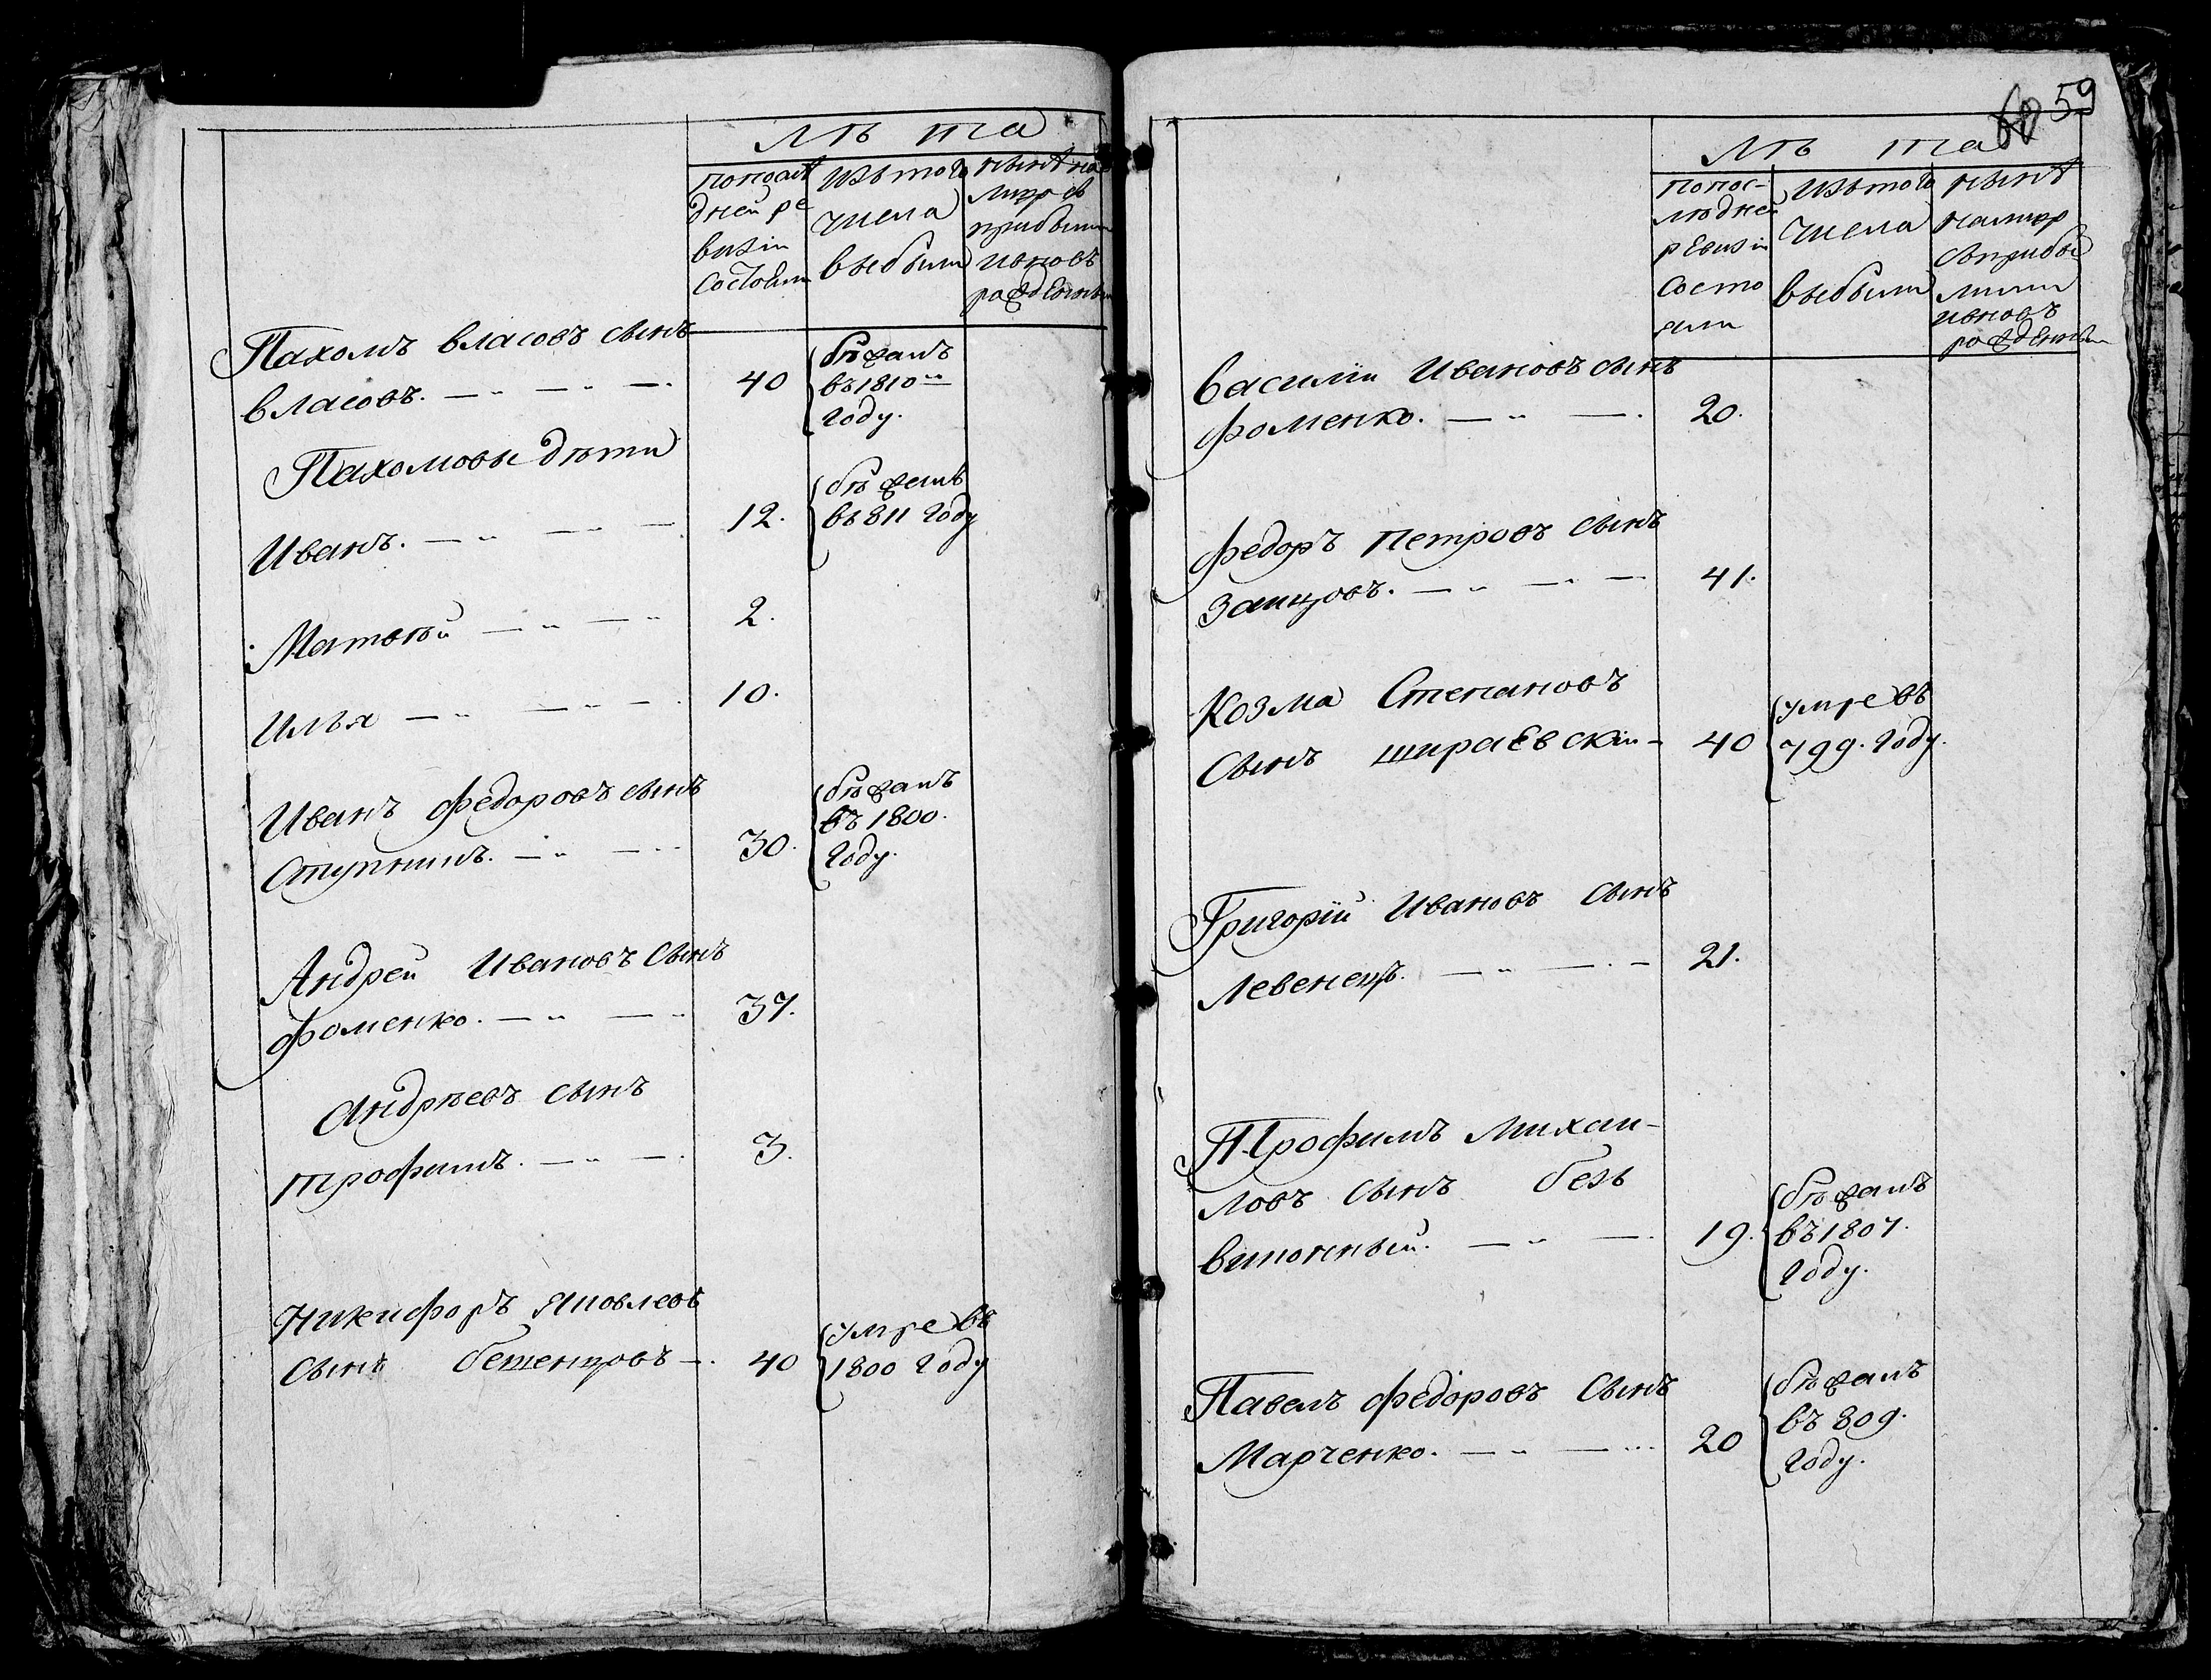 Лѣта
попослѣ
дней ре
визіи
состояли
изътого
числа
выбыли
нынѣ на
лицо съ
прибыли
ивновь
рожденными
Пахомъ власовъ сынъ
власовъ. 40 бѣжалъ
въ 1810м
году.
Пахомовы дѣти
Иванъ. 12. бѣжалъ
въ 811 году
Матвѣй 2.
Илья 10.
Иванъ федоровъ сынъ
Ступникъ. 30. бѣжалъ
въ 1800.
году.
Андрей Ивановъ сынъ
фоменко. 37.
Андрѣевъ сынъ
трофимъ. 3.
Никифоръ Яковлевъ
сынъ 40 умре въ
1800 году
59
Лѣта
попос-
лѣдней
ревизіи
состо
яли
изътого
числа
выбыли
нынѣ
налицо
съприбы
лыми
ивновь
рожденными
василій Ивановъ сынъ
фоменко. 20.
федоръ Петровъ сынъ
Заицовъ. 41.
Козма Степановъ
сынъ шираевскій 40 умре въ
799. году.
Григорій Ивановъ сынъ
Левенецъ. 21.
Трофимъ Михаи-
ловъ сынъ безъ
19. бѣжалъ
въ 1807.
году.
Павелъ федоровъ сынъ
Марченко. 20 бѣжалъ
въ 809.
году.